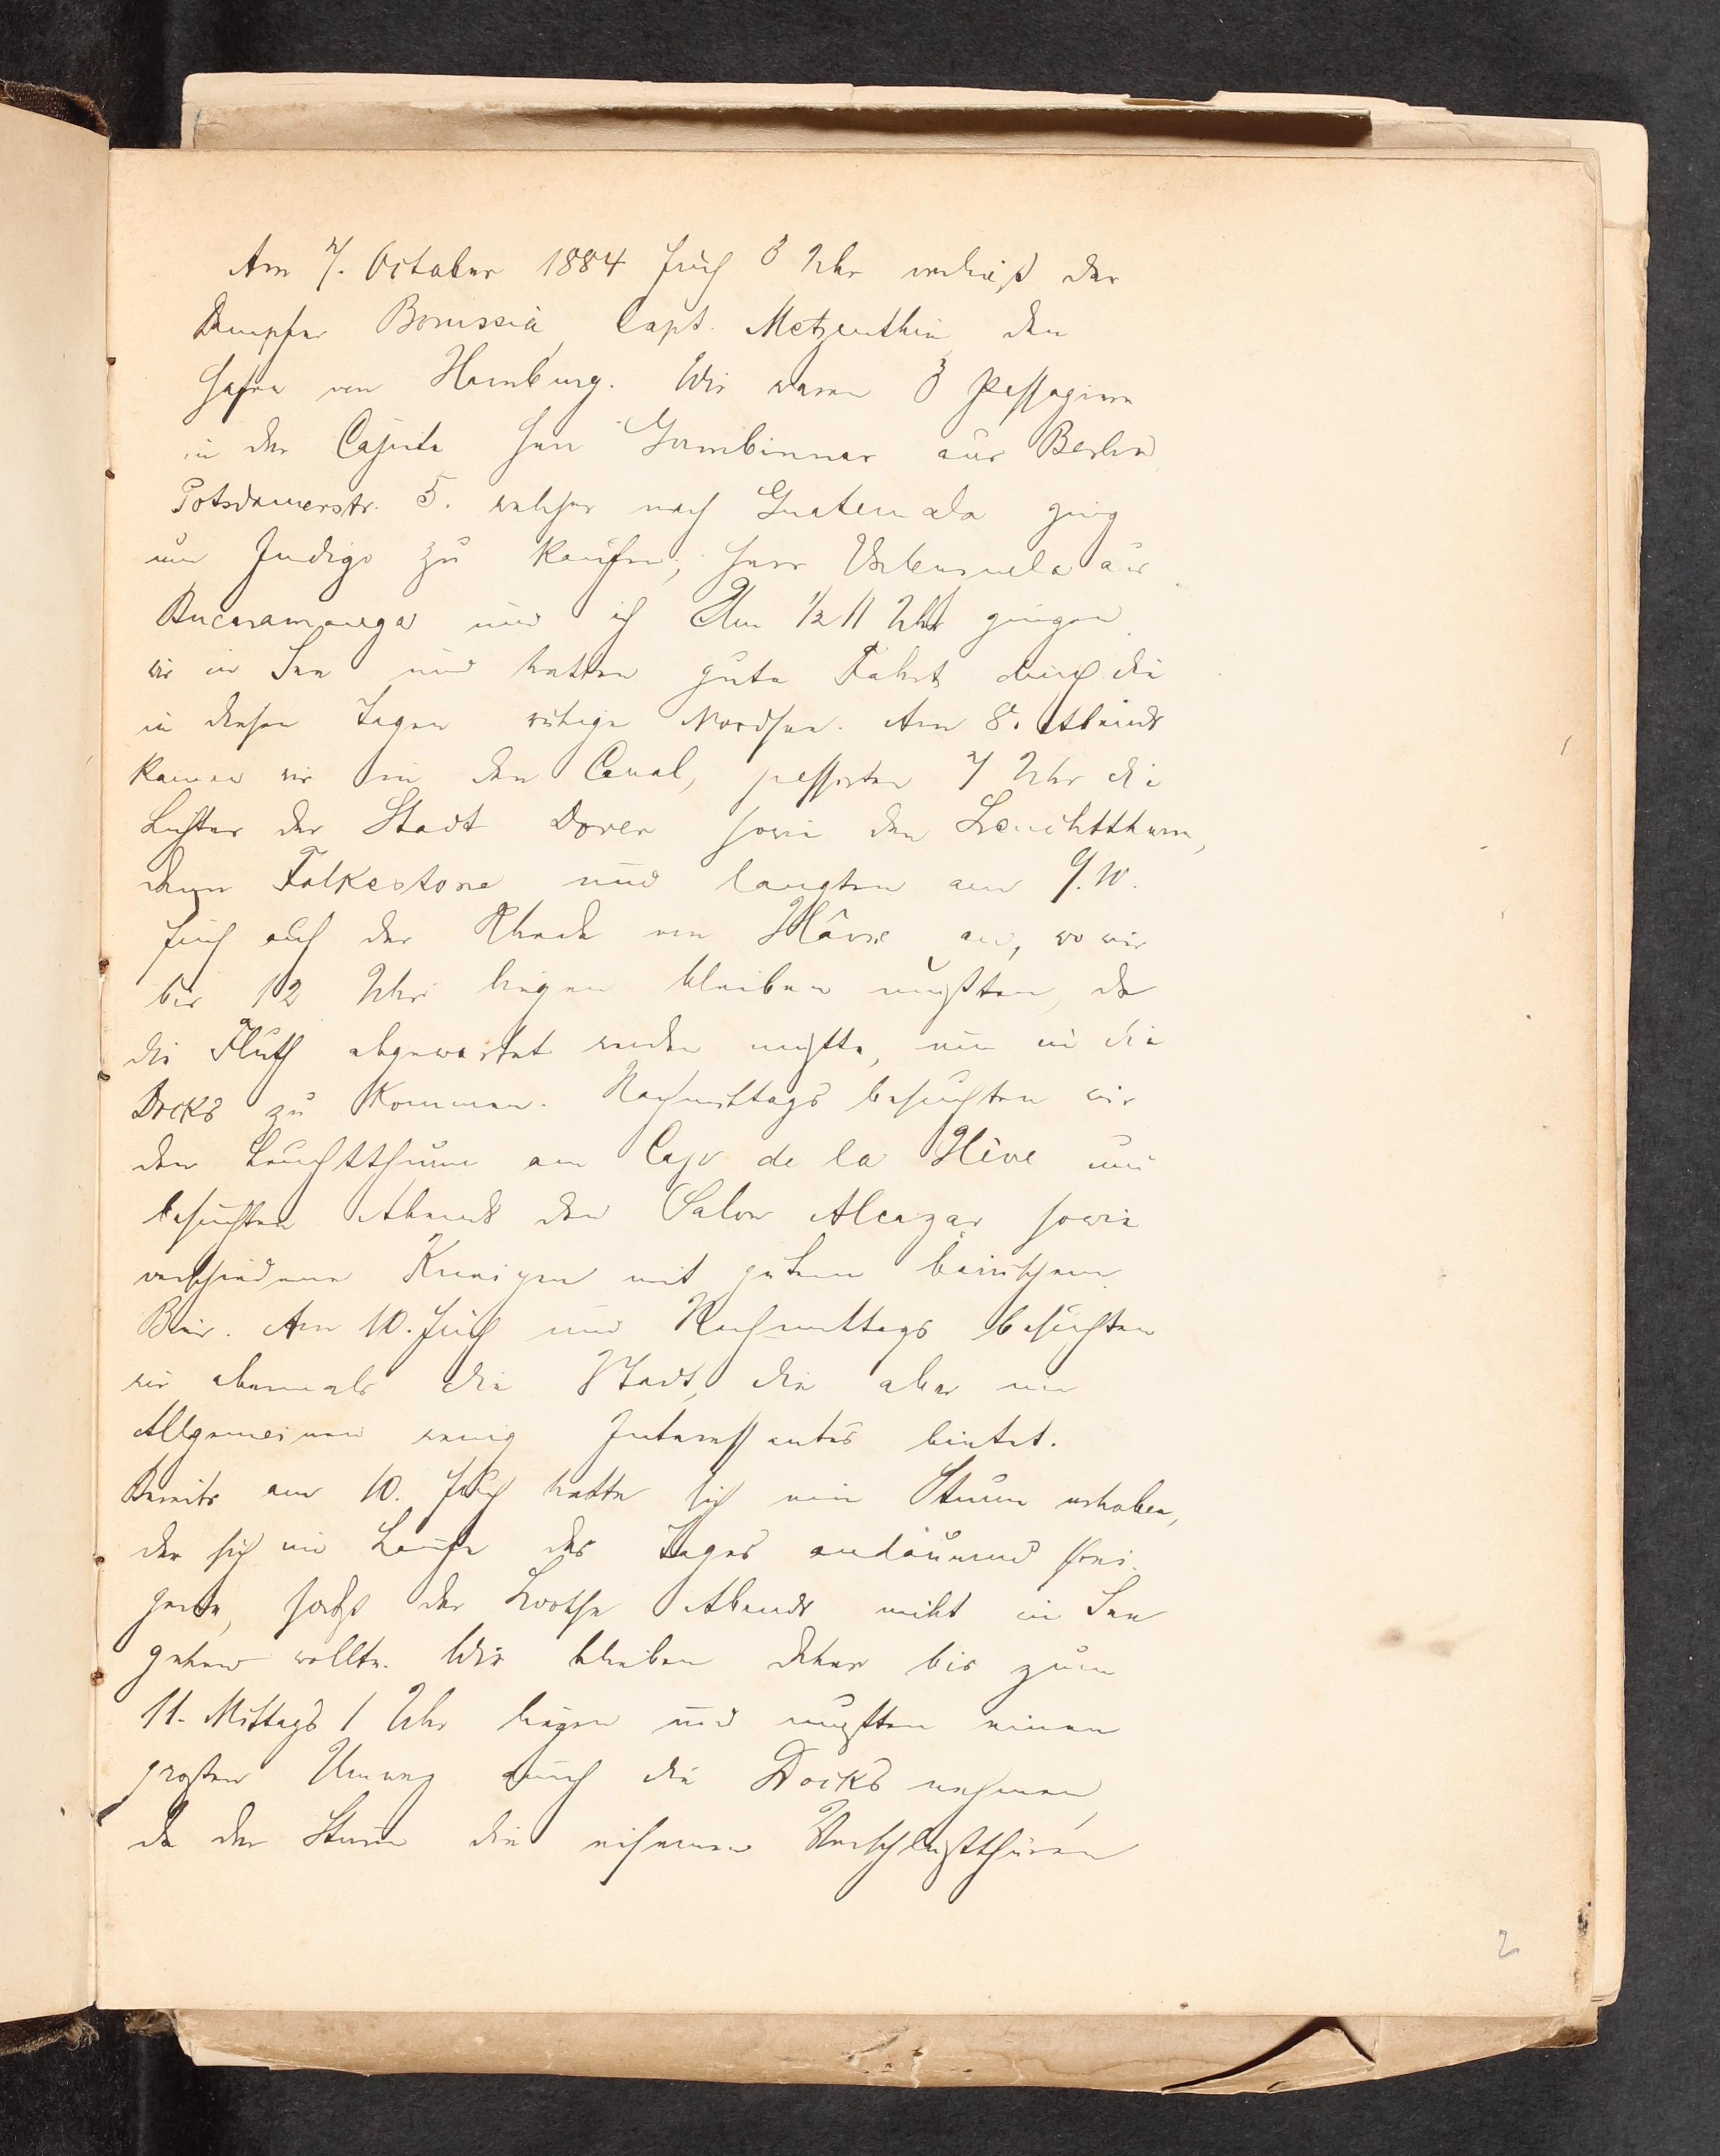 Am 7. October 1884 früh 3 Uhr verließ der
Dampfer Borussia, Capt. Metzenthin den
Hafen von Hamburg. Wir waren 3 Passagiere
in der Cajüte Herr Gumbinner aus Berlin
Potsdamerstr. 5. welcher nach Guatemala ging
um Indigo zu kaufen, Herr Valenzuela aus
Bucaramanga und ich Um ½ 11 Uhr gingen
wir in See und hatten gute Fahrt durch die
in diesen Tagen ruhige Nordsee. Am 8. Abends
kamen wir in den Canal, passirten 7 Uhr die
Lichter der Stadt Dover sowie den Leuchtthurm,
dann Folkestone und langten am 9.10.
früh auf der Rhede von Hâvre an, wo wir
bis 12 Uhr liegen bleiben mußten, da
die Fluth abgewartet werden mußte, um in die
Docks zu kommen. Nachmittags besuchten wir
den Leuchtthurm am Cap de la Hève und
besuchten Abends den Salon Alcazar sowie
verschiedene Kneipen mit gutem bairischem
Bier. Am 10. früh und Nachmittags besuchten
wir abermals die Stadt, die aber im
Allgemeinen wenig Interessantes bietet.
Bereits am 10. früh hatte sich ein Sturm erhoben,
der sich im Laufe des Tages andauernd stei-
gerte, sodaß der Lootse Abends nicht in See
gehen wollte. Wir blieben daher bis zum
11. Mittags 1 Uhr liegen und mußten einen
großen Umweg durch die Docks nehmen,
da der Sturm die eisernen Verschlußthüren
2